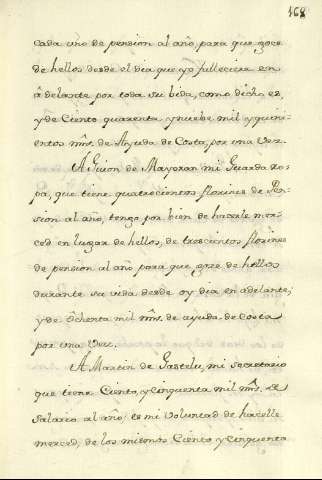 168
cada uno de pension al año, para que goze
de hellos desde el dia que yo falleciere en
adelante por toda su bida, como dicho es,
y de Ciento quarenta y nuebe mil y quini-
entos mrs. de Ayuda de Costa, por una vez.
A Guion de Mayoran mi Guarda ro-
pa, que tiene quatrocientos florines de Pen-
sion al año, tengo por bien de hacerle mer-
ced en lugar de hellos, de trescientos florines
de pension al año para que goze de hellos
durante su vida desde oy dia en adelante;
y de ochenta mil mrs. de ayuda de costa
por una vez.
A Martin de Gastelu, mi secretario
que tiene Ciento, y cinquenta mil mrs. de
salario al año: es mi voluntad de hacelle
merced, de los mismos Ciento y cinquenta